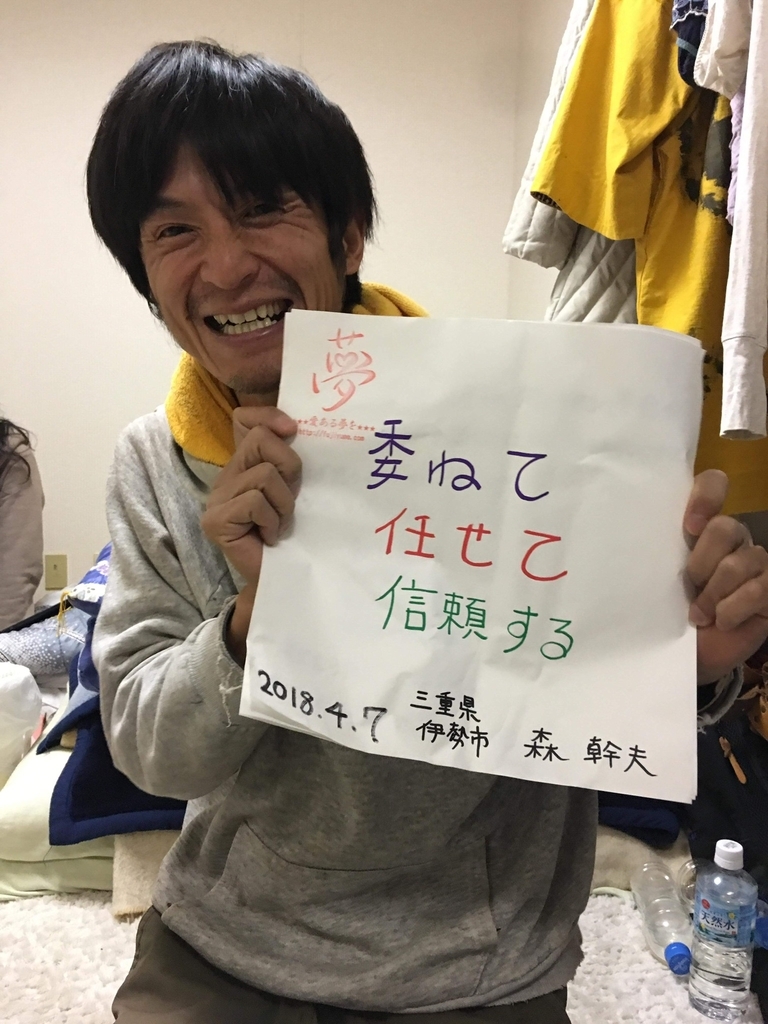 夢
★★★愛ある夢を★★★
委ねて
任せて
信頼する
2018.4.7
三重県
伊勢市
森 幹夫
天然水